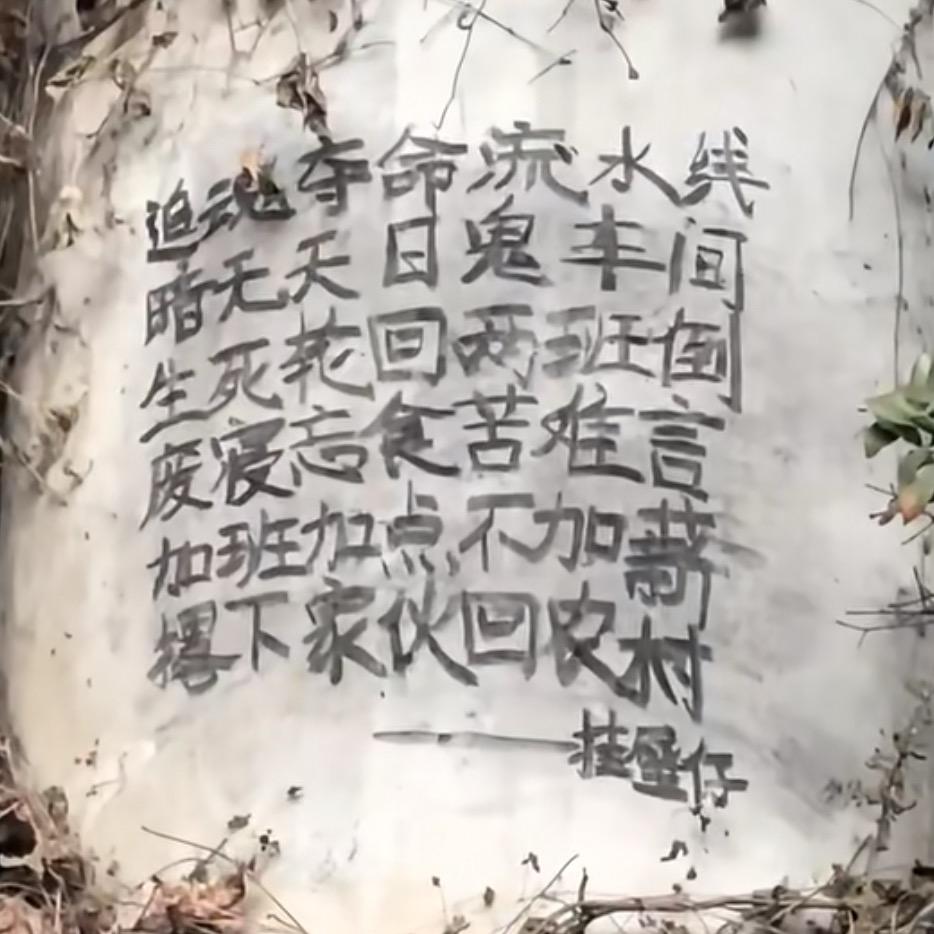 追魂夺命流水线
暗无天日鬼车间
生死轮回两班倒
废寝忘食苦难言
加班加点不加薪
撂下家伙回农村
——挂壁仔